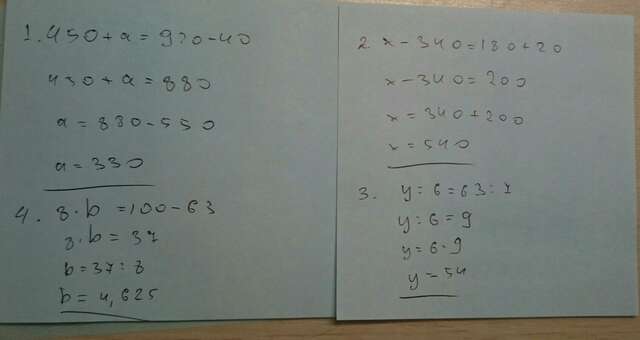 1. 450 + a = 920 - 40
450 + a = 880
a = 880 - 550
a = 330
4. 8 · b = 100 - 63
8 · b = 37
b = 37 : 8
b = 4,625
2. x - 340 = 180 + 20
x - 340 = 200
x = 340 + 200
x = 540
3. y : 6 = 63 : 7
y : 6 = 9
y = 6 · 9
y = 54